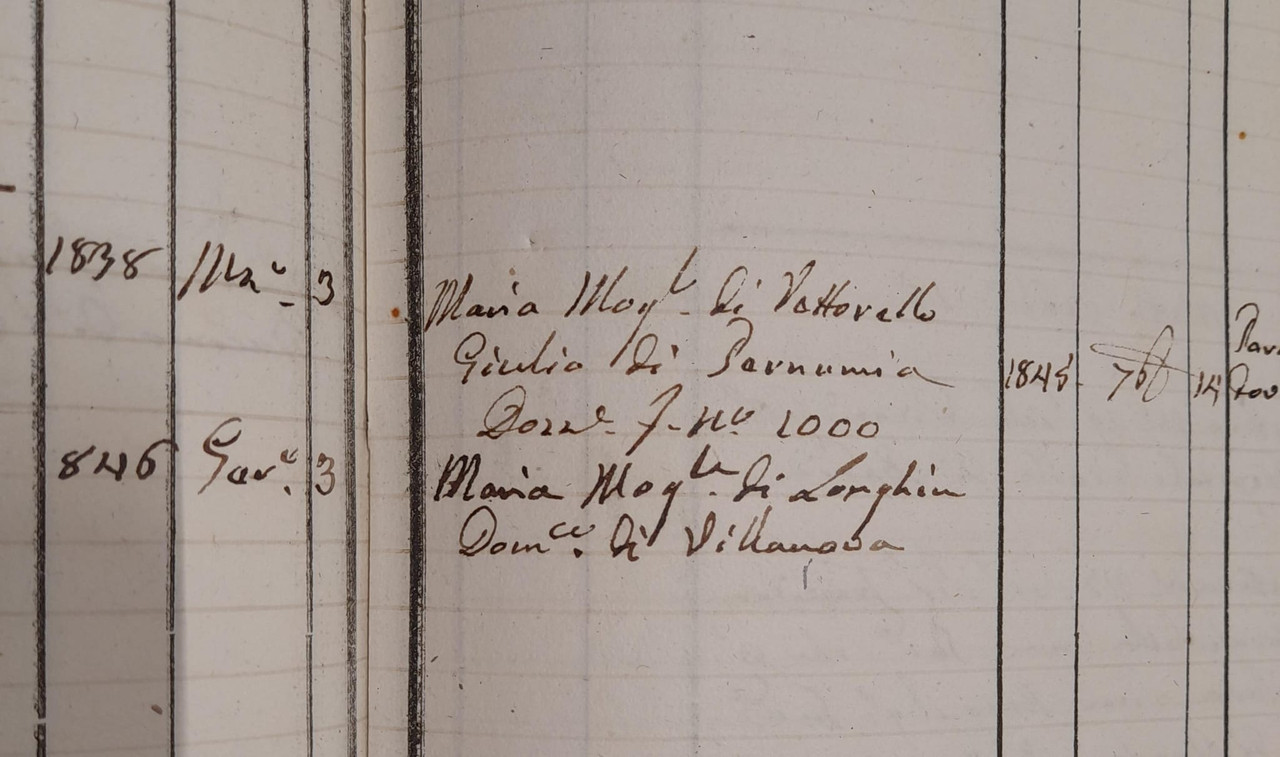 1838 Mar.º 3
Maria Mogl. di Vettorello
Giulio di Pernumia
f. Nº 1000
1845 7bb 14
Par
846 Gen.º 3
Maria Mog.le di Longhin
Dom.co di Villanova